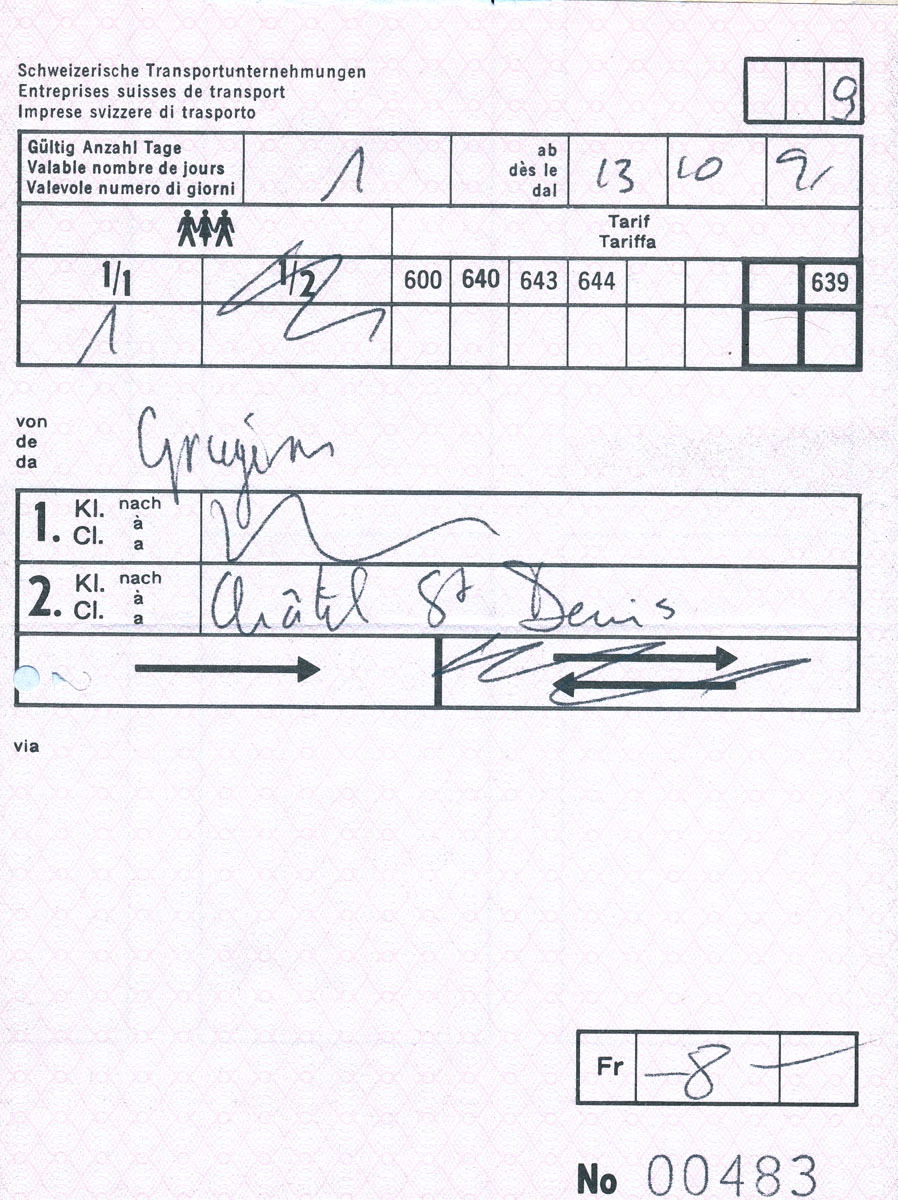 Schweizerische Transportunternehmungen
Entreprises suisses de transport
Imprese svizzere di trasporto
9
Gültig Anzahl Tage
Valable nombre de jours
Valevole numero di giorni
1
ab
dès le
dal
13 10
Tarif
Tariffa
1/1 1/2 600 640 643 644 639
1
von
de
da
1. Kl. Cl. nach à a
2. Kl. Cl. nach à a Châtel St Denis
via
Fr -8 —
No 00483